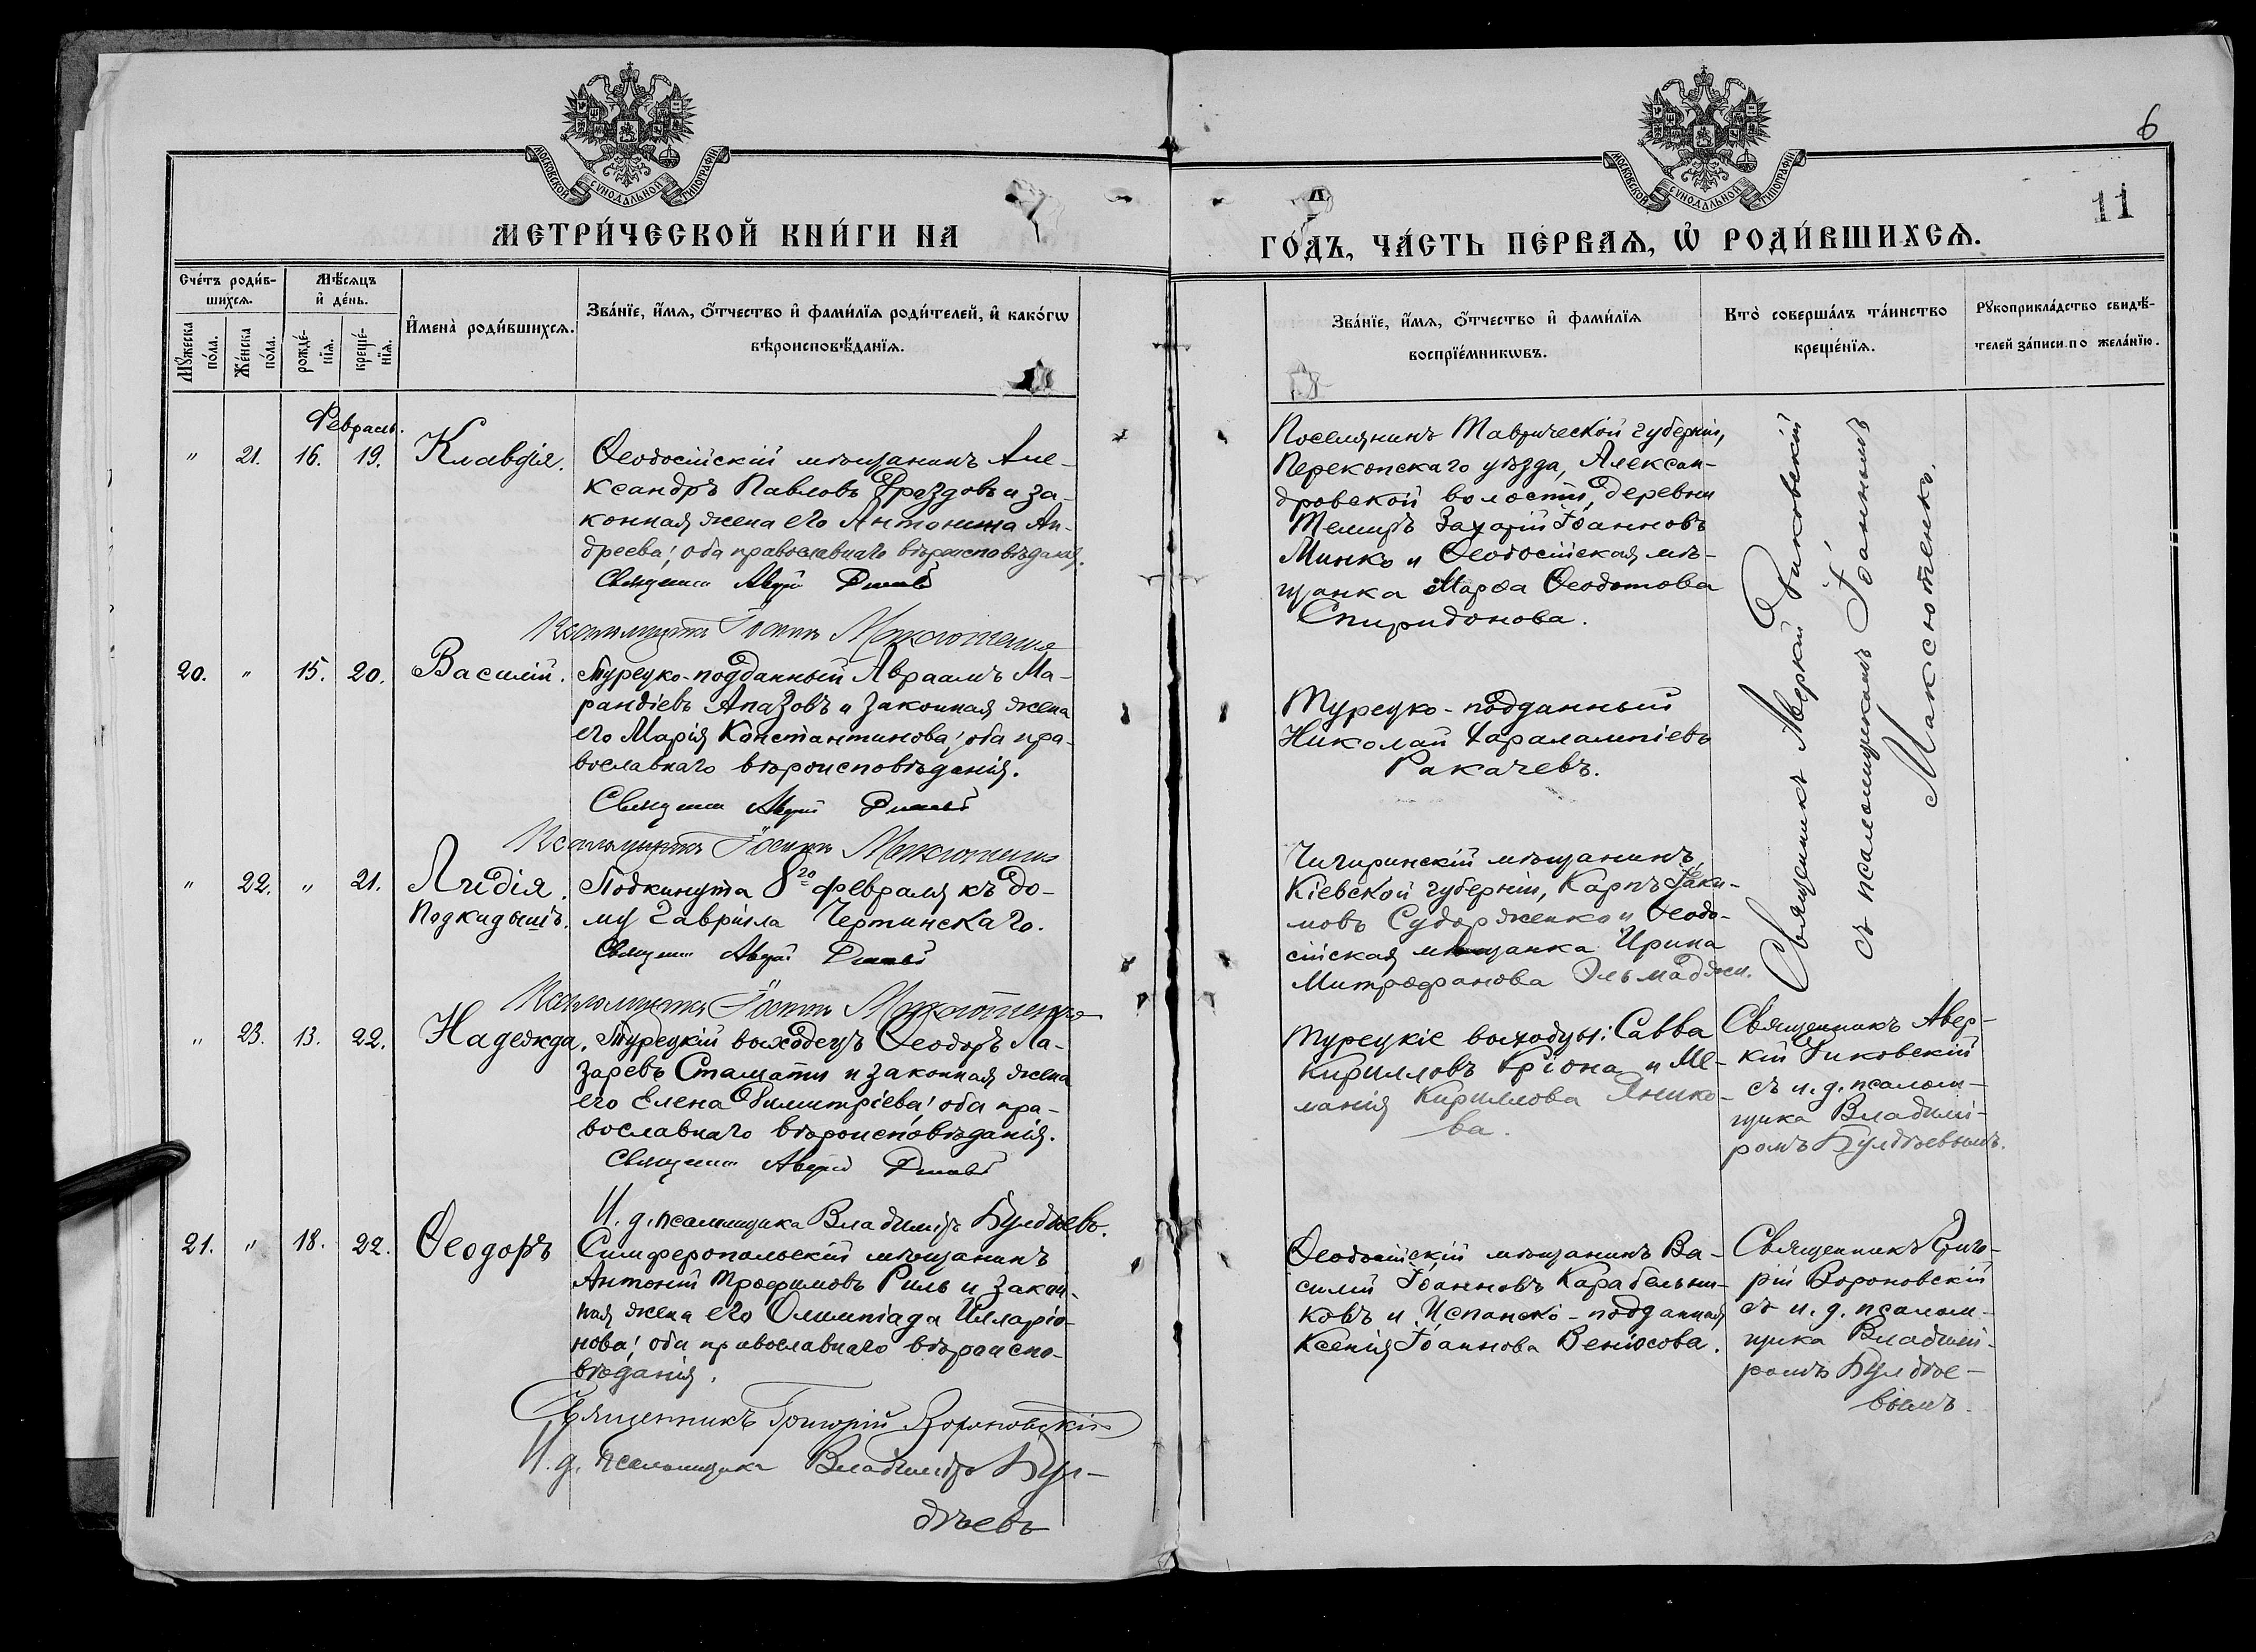 6
11
МОСКОВСКОЙ СѴНОДАЛЬНОЙ ТИПОГРАФІИ
МОСКОВСКОЙ СѴНОДАЛЬНОЙ ТИПОГРАФІИ
МЕТРИ́ЧЕСКОЙ КНИ́ГИ НА
ГО́ДЪ, ЧА́СТЬ ПЕ́РВАѦ, Ѽ РОДИ́ВШИХСѦ.
Сче́тъ роди́в-
шихсѧ.
Мꙋжеска
по́ла.
Же́нска
по́ла.
Мѣ́сѧцъ
и҆ де́нь.
рожде́-
нїѧ.
креще́-
нїѧ.
И҆мена̀ роди́вшихсѧ.
Зва́нїе, и҆́мѧ, ѻ҆́тчество и҆ фами́лїѧ роди́телей, и҆ како́гѡ
вѣроисповѣ́данїѧ.
Зва́нїе, и҆́мѧ, ѻ҆́тчество и҆ фами́лїѧ
воспрїе́мникѡвъ.
Кто̀ соверша́лъ та́инство
креще́нїѧ.
Рꙋкоприкла́дство свидѣ́-
телей за́писи по жела́нїю.
Февраль.
" 21. 16. 19. Клавдія.
Ѳеодосійскій мѣщанинъ Але-
ксандръ Павловъ и за-
конная жена его Антонина Ан-
дреева; оба православнаго вѣроисповѣданія.
Священник Аверкій
Псаломщикъ Іоаннъ Максютенко
Поселянинъ Таврической губерніи,
Перекопскаго уѣзда, Алексан-
дровской волости, деревни
Темиръ Захарій Іоанновъ
Минко и Ѳеодосійская мѣ-
щанка Марѳа Ѳеодотова
Спиридонова.
Священникъ Аверкій
съ псаломщикомъ Іоанномъ
Максютенко.
20. " 15. 20. Василій.
Турецко-подданный Авраамъ Ма-
рандіевъ Апазовъ и законная жена
его Марія Константинова; оба пра-
вославнаго вѣроисповѣданія.
Священник Аверкій
Псаломщикъ Іоаннъ Максютенко
Турецко-подданный
Николай Харалампіевъ
Ракачевъ.
" 22. " 21. Лидія.
Подкидышъ.
Подкинута 8го февраля къ до-
му Гавріила Чертинскаго.
Священник Аверкій
Псаломщикъ Іоаннъ Максютенко
Чигиринскій мѣщанинъ,
Кіевской губерніи, Карпъ Іаки-
мовъ Судорженко и Ѳеодо-
сійская мѣщанка Ирина
Митрофанова Эльмаджи.
" 23. 13. 22. Надежда.
Турецкій выходецъ Ѳеодоръ Ла-
заревъ Стамати и законная жена
его Елена Димитріева; оба пра-
вославнаго вѣроисповѣданія.
Священник Аверкій
И. д. псаломщика Владиміръ Булдѣевъ.
Турецкіе выходцы: Савва
Кирилловъ Кріона и Ме-
ланія Кириллова Янико-
ва.
Священникъ Авер-
кій
съ и. д. псалом-
щика Владимі-
ромъ Булдѣевымъ.
21. " 18. 22. Ѳеодоръ
Симферопольскій мѣщанинъ
Антоній Трофимовъ Риль и закон-
ная жена его Олимпіада Илларіо-
нова; оба православнаго вѣроиспо-
вѣданія.
Священникъ Григорій Вороновскій
И. д. псаломщика Владиміръ Бул-
дѣевъ
Ѳеодосійскій мѣщанинъ Ва-
силій Іоанновъ Карабельни-
ковъ и Испанско-подданная
Ксенія Іоаннова Венюсова.
Священникъ Григо-
рій Вороновскій
съ и. д. псалом-
щика Владимі-
ромъ Булдѣе-
вымъ.